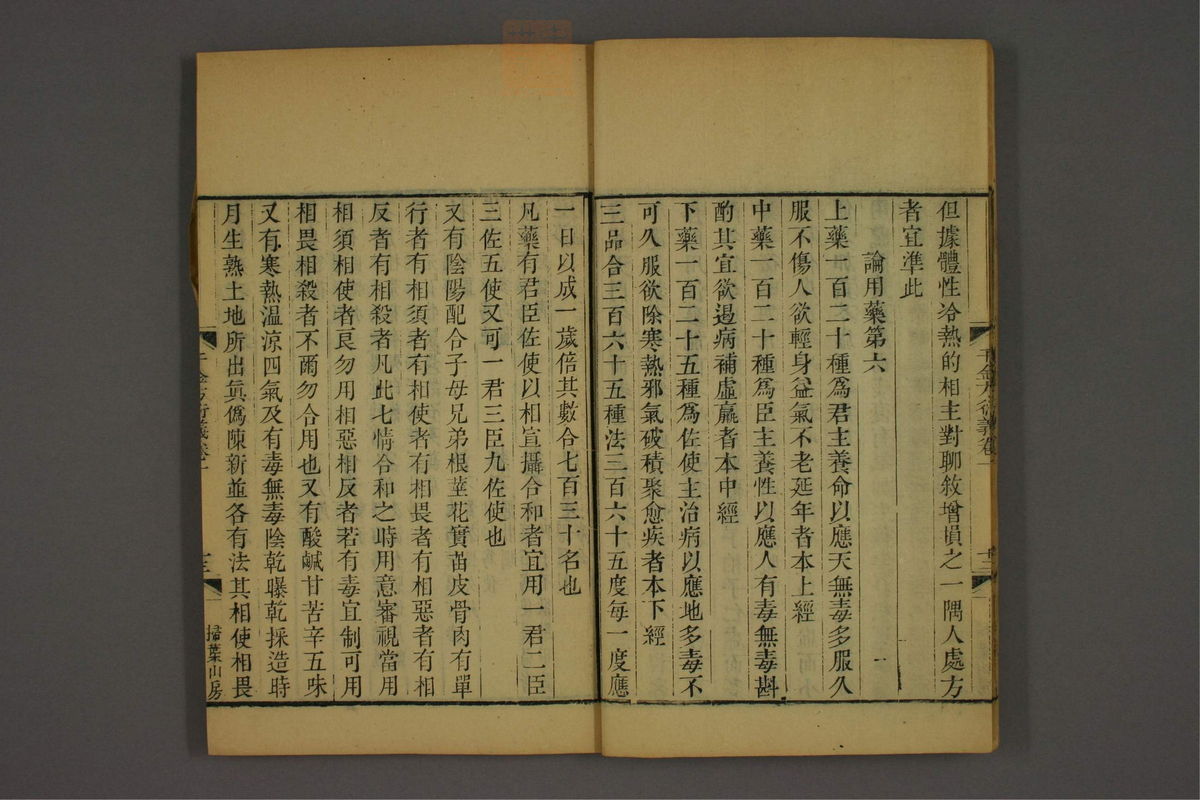 但據體性冷熱的相主對聊敘增損之一隅人處方
者宜準此
論用藥第六
上藥一百二十種爲君主養命以應天無毒多服久
服不傷人欲輕身益氣不老延年者本上經
中藥一百二十種爲臣主養性以應人有毒無毒斟
酌其宜欲遏病補虛羸者本中經
下藥一百二十五種爲佐使主治病以應地多毒不
可久服欲除寒熱邪氣破積聚愈疾者本下經
三品合三百六十五種法三百六十五度每一度應
一日以成一歲倍其數合七百三十名也
凡藥有君臣佐使以相宣攝合和者宜用一君二臣
三佐五使又可一君三臣九佐使也
又有陰陽配合子母兄弟根莖花實苗皮骨肉有單
行者有相須者有相使者有相畏者有相惡者有相
反者有相殺者凡此七情合和之時用意審視當用
相須相使者良勿用相惡相反者若有毒宜制可用
相畏相殺者不爾勿合用也又有酸鹹甘苦辛五味
又有寒熱温涼四氣及有毒無毒陰乾曝乾採造時
月生熟土地所出眞僞陳新並各有法其相使相畏
千金方衍義卷一
十三
掃葉山房